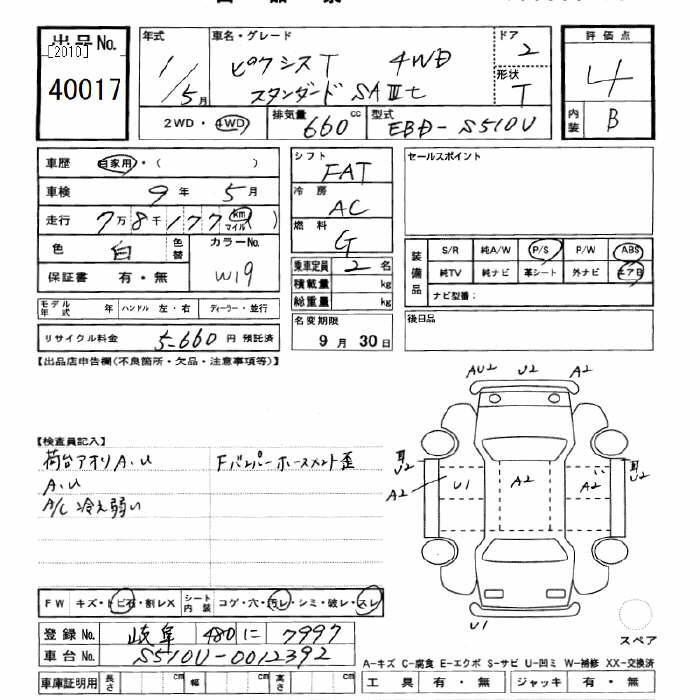 出品No.
[2010]
40017
年式
1/5月
車名・グレード
ピクシスT 4WD
スタンダード SAⅢt
ドア
2
形状
T
評価点
4
内装
B
2WD・4WD
排気量
660
cc
型式
EBD-S510U
車歴
自家用・( )
車検
9年5月
走行
7万8千177
km
マイル
)
色
白
色替
カラーNo.
W19
保証書
有・無
モデル年式
年
ハンドル 左・右
ディーラー・並行
リサイクル料金
5-660
円 預託済
シフト
FAT
冷房
AC
燃料
G
乗車定員
2名
積載量
kg
総重量
kg
名変期限
9月30日
セールスポイント
装備品
S/R 純A/W P/S P/W ABS
純TV 純ナビ 革シート 外ナビ エアB
ナビ型番:
後日品
【出品店申告欄(不良箇所・欠品・注意事項等)】
【検査員記入】
荷台アオリA.U
Fバンパーホースメント歪
A.U
A/C 冷え弱い
AU2
U2
A2
U2
A2
U1
A2
A2
U2
A2
U1
スペア
FW キズ・トビ石・割レX
シート内装
コゲ・穴・汚レ・シミ・破レ・スレ
登録No.
岐阜 480 に 7997
車台No.
S510U-0012392
車庫証明用
長さ
cm
幅
cm
高さ
cm
A-キズ C-腐食 E-エクボ S-サビ U-凹ミ W-補修 XX-交換済
工具 有・無
ジャッキ 有・無